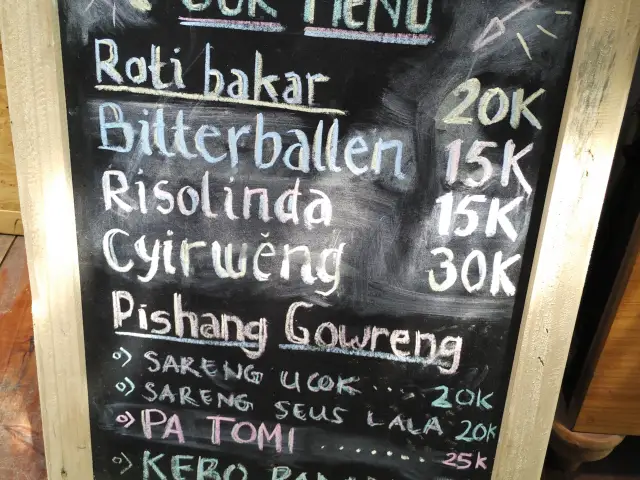 OUR MENU
Roti bakar 20K
Bitterballen 15K
Risolinda 15K
Cyirwěng 30K
Pishang Gowreng
SARENG UCOK .... 20K
SARENG SEUS LALA 20K
PA TOMI ....... 25K
KEBO